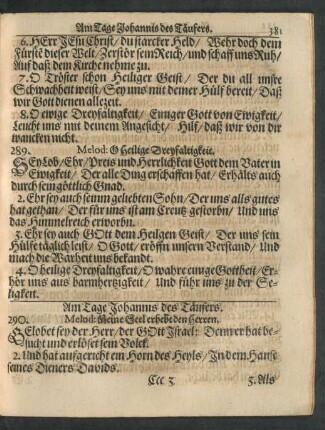 Am Tage Johannis des Täufers. 381
6. HErr JEsu Christ / du starcker Held / Wehr doch dem
Fürste dieser Welt / Zerstör sein Reich / und schaff uns Ruh /
Auf daß dem Kirche nehme zu.
7. O Tröster schon Heiliger Geist / Der du all unsre
Schwachheit weist / Sey uns mit deiner Hülf bereit / Daß
wir Gott dienen allezeit.
8. O ewige Dreyfaltigkeit / Einiger Gott von Ewigkeit /
Leucht uns mit deinem Angesicht / Hilf / daß wir von dir
wancken nicht.
289. Melod: O Heilige Dreyfaltigkeit.
Sey Lob / Ehr / Preis und Herrlichkeit Gott dem Vater in
Ewigkeit / Der alle Ding erschaffen hat / Erhälts auch
durch sein göttlich Gnad.
2. Ehr sey auch seinm geliebten Sohn / Der uns alls gutes
hat gethan / Der für uns ist am Creutz gestorbn / Und uns
das Himmelreich erworbn.
3. Ehr sey auch GOtt dem Heilgen Geist / Der uns sein
Hülfe täglich leist / O Gott / eröffn unsern Verstand / Und
mach die Warheit uns bekandt.
4. O heilige Dreyfaltigkeit / O wahre einige Gottheit / Er-
hör uns aus barmhertzigkeit / Und führ uns zu der Se-
ligkeit.
Am Tage Johannis des Täufers.
290. Melod: Meine Seel erhebt den Herren.
GElobet sey der Herr / der GOtt Israel: Denn er hat be-
sucht und erlöset sein Volck.
2. Und hat aufgericht ein Horn des Heyls / In dem Hause
seines Dieners Davids.
Ccc 3 3. Als